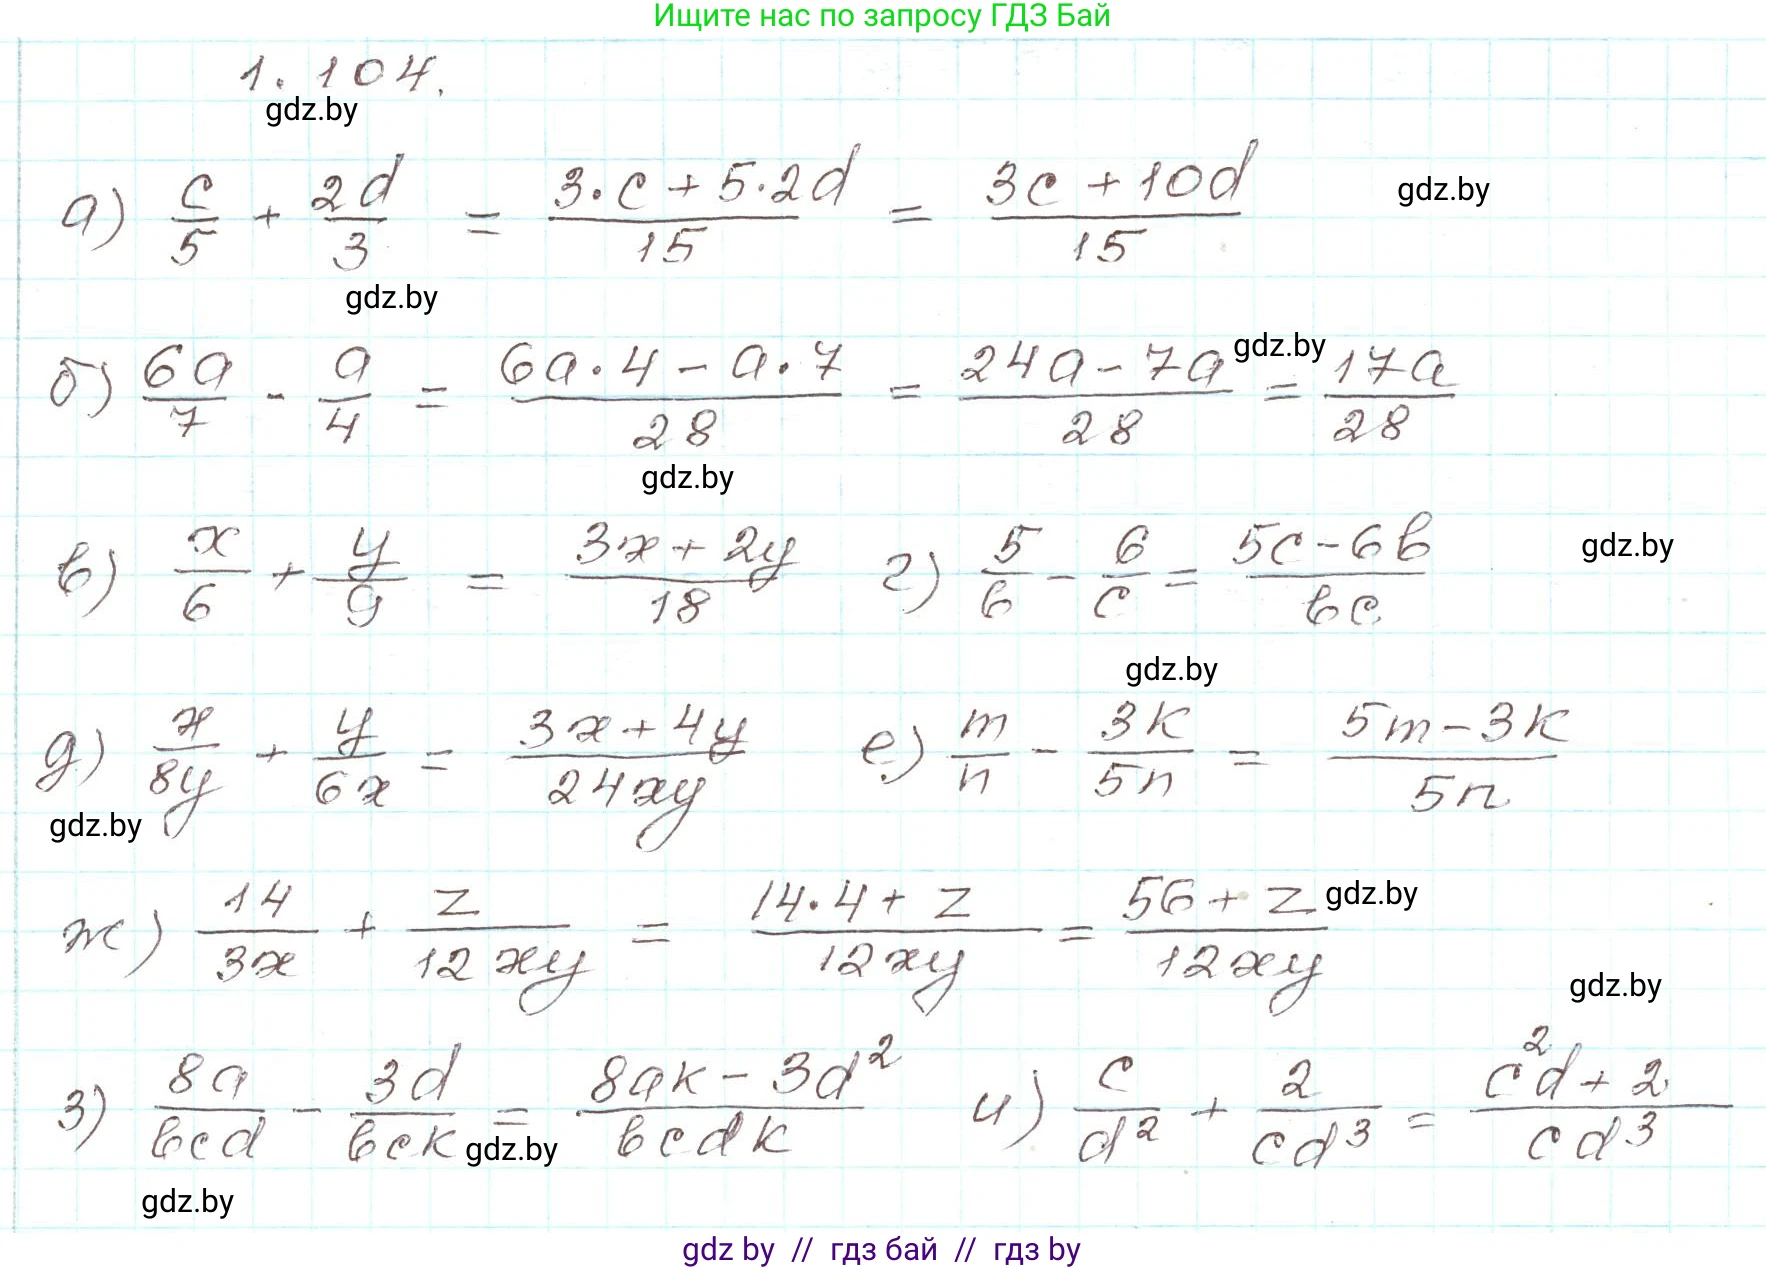 Ищите нас по запросу ГДЗ Бай
1.104.
gdz.by
а) c/5 + 2d/3 = (3·c+5·2d)/15 = (3c+10d)/15 gdz.by
gdz.by
б) 6a/7 - a/4 = (6a·4-a·7)/28 = (24a-7a)/28 = 17a/28 gdz.by
gdz.by
в) x/6 + y/9 = (3x+2y)/18 г) 5/b - 6/c = (5c-6b)/bc gdz.by
gdz.by
д) x/8y + y/6x = (3x+4y)/24xy е) m/n - 3k/5n = (5m-3k)/5n
gdz.by
ж) 14/3x + z/12xy = (14·4+z)/12xy = (56+z)/12xy gdz.by
gdz.by
з) 8a/bcd - 3d/bck = (8ak-3d²)/bcdk и) c/d² + 2/cd³ = (c²d+2)/cd³
gdz.by
gdz.by
gdz by // гдз бай // гдз by